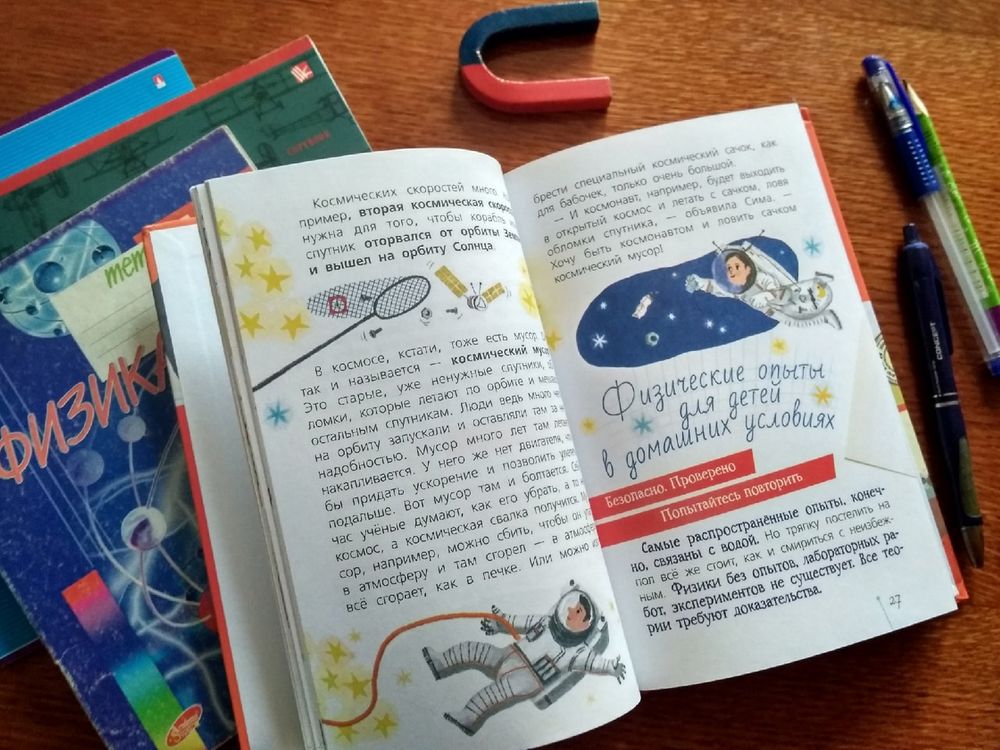 COPYBOOK
тет
ФИЗИКА
Космических скоростей много
пример, вторая космическая
нужна для того, чтобы корабль
спутник оторвался от орбиты
и вышел на орбиту Солнца.
В космосе, кстати, тоже есть мусор.
так и называется — космический
Это старые, уже ненужные спутники,
ломки, которые летают по орбите и
остальным спутникам. Люди ведь много
на орбиту запускали и оставляли там за
надобностью. Мусор много лет там
накапливается. У него же нет двигателя,
бы придать ускорение и позволить
подальше. Вот мусор там и болтается.
час учёные думают, как его убрать, а то
космос, а космическая свалка получится.
сор, например, можно сбить, чтобы он
в атмосферу и там сгорел — в
всё сгорает, как в печке. Или можно
брести специальный космический сачок, как
для бабочек, только очень большой.
— И космонавт, например, будет выходить
в открытый космос и летать с сачком, ловя
обломки спутника, — объявила Сима. —
Хочу быть космонавтом и ловить сачком
космический мусор!
Физические опыты
для детей
в домашних условиях
Безопасно. Проверено
Попытайтесь повторить
Самые распространённые опыты, конеч-
но, связаны с водой. Но тряпку постелить на
пол всё же стоит, как и смириться с неизбеж-
ным. Физики без опытов, лабораторных ра-
бот, экспериментов не существует. Все тео-
рии требуют доказательства.
27